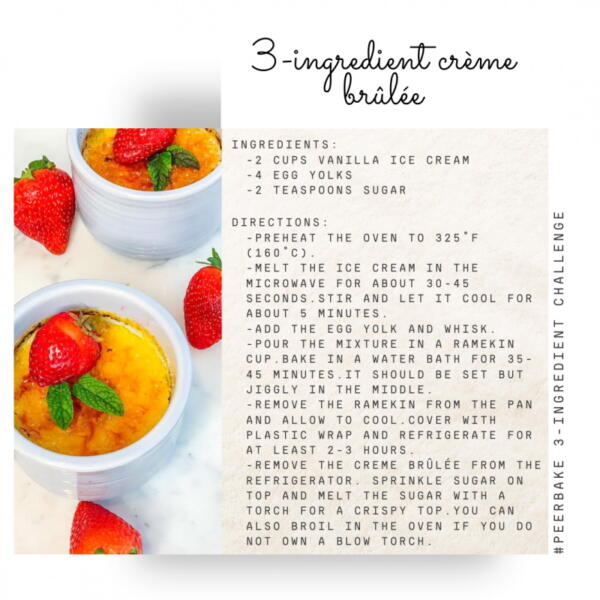 3-ingredient crème
brûlée
INGREDIENTS:
-2 CUPS VANILLA ICE CREAM
-4 EGG YOLKS
-2 TEASPOONS SUGAR
DIRECTIONS:
-PREHEAT THE OVEN TO 325°F
(160°C).
-MELT THE ICE CREAM IN THE
MICROWAVE FOR ABOUT 30-45
SECONDS.STIR AND LET IT COOL FOR
ABOUT 5 MINUTES.
-ADD THE EGG YOLK AND WHISK.
-POUR THE MIXTURE IN A RAMEKIN
CUP.BAKE IN A WATER BATH FOR 35-
45 MINUTES.IT SHOULD BE SET BUT
JIGGLY IN THE MIDDLE.
-REMOVE THE RAMEKIN FROM THE PAN
AND ALLOW TO COOL.COVER WITH
PLASTIC WRAP AND REFRIGERATE FOR
AT LEAST 2-3 HOURS.
-REMOVE THE CREME BRÛLÉE FROM THE
REFRIGERATOR. SPRINKLE SUGAR ON
TOP AND MELT THE SUGAR WITH A
TORCH FOR A CRISPY TOP.YOU CAN
ALSO BROIL IN THE OVEN IF YOU DO
NOT OWN A BLOW TORCH.
#PEERBAKE 3-INGREDIENT CHALLENGE